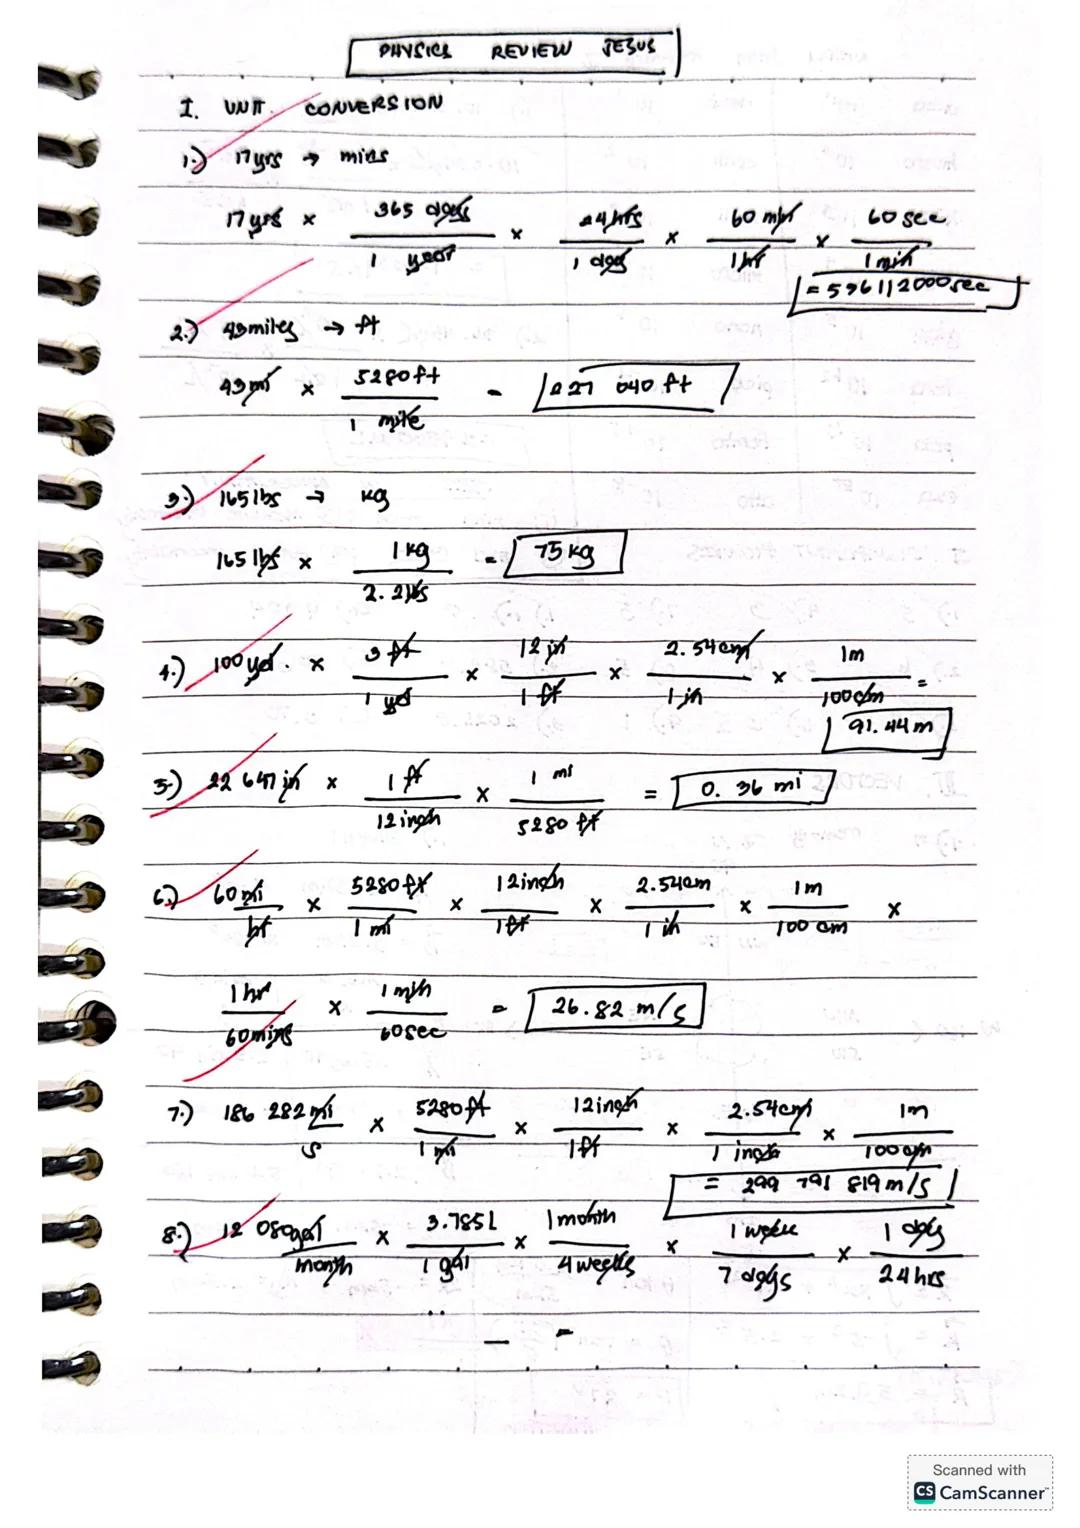 PHYSICS REVIEW JESUS
I. UNIT CONVERSION
1.) 17yrs → mins
17yrs × 365 days / 1 year × 24hrs / 1 day × 60 min / 1hr × 60 sec / 1 min
= 536112000 sec
2.) 43miles → ft
43mi × 5280ft / 1 mile = 227 040 ft
3.) 165lbs → kg
165lbs × 1kg / 2.2lbs = 75kg
4.) 100yd. × 3ft / 1yd × 12in / 1ft × 2.54cm / 1in × 1m / 100cm =
91.44m
5.) 22 647in × 1ft / 12inch × 1 mi / 5280 ft = 0.36 mi
6.) 60mi / hr × 5280ft / 1mi × 12inch / 1ft × 2.54cm / 1in × 1m / 100 cm ×
1hr / 60mins × 1min / 60sec = 26.82 m/s
7.) 186 282mi / s × 5280ft / 1mi × 12inch / 1ft × 2.54cm / 1 inch × 1m / 100cm
= 299 791 819m/s
8.) 12 080gal / month × 3.785L / 1gal × 1month / 4weeks × 1week / 7days × 1 day / 24hrs
=
Scanned with
CS CamScanner